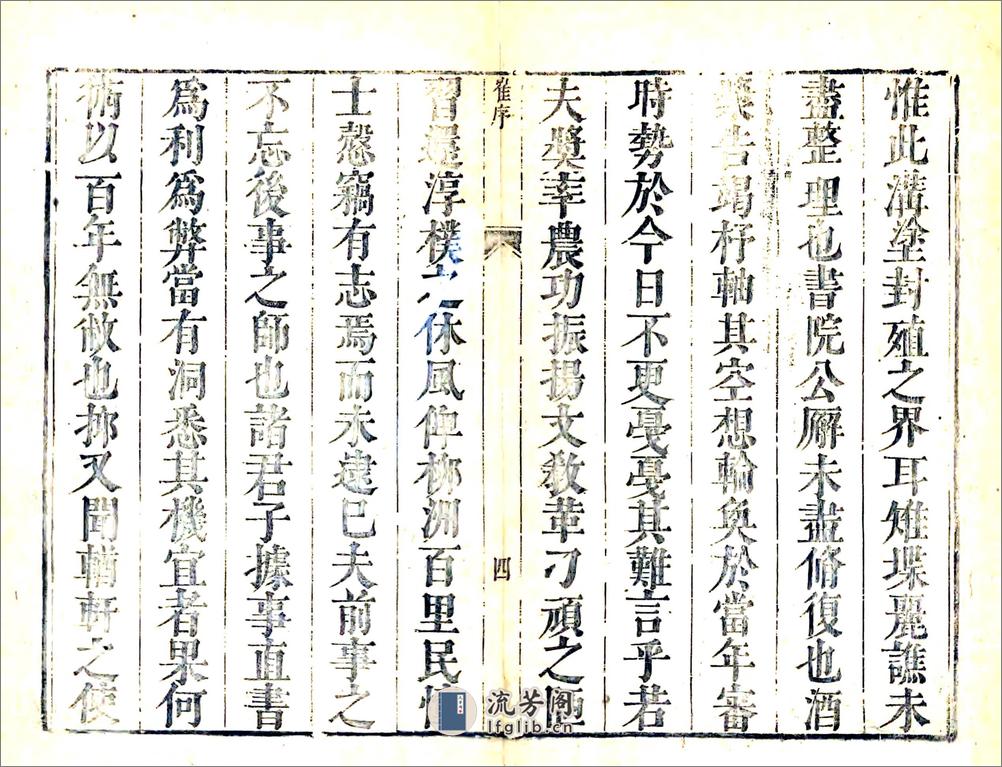 惟此溝塗封殖之界耳雉堞麗譙未
盡整理也書院公廨未盡脩復也酒
漿告竭杼軸其空想輪奐於當年審
時勢於今日不更戞戞其難言乎若
夫獎率農功振揚文敎革刁頑之
崔序
四
習還淳樸之休風俾栁洲百里民
士慤竊有志焉而未逮已夫前事之
不忘後事之師也諸君子據事直書
爲利爲弊當有洞悉其機宜者果何
術以百年無敝也抑又聞輶軒之使
流芳阁
lfglib.cn